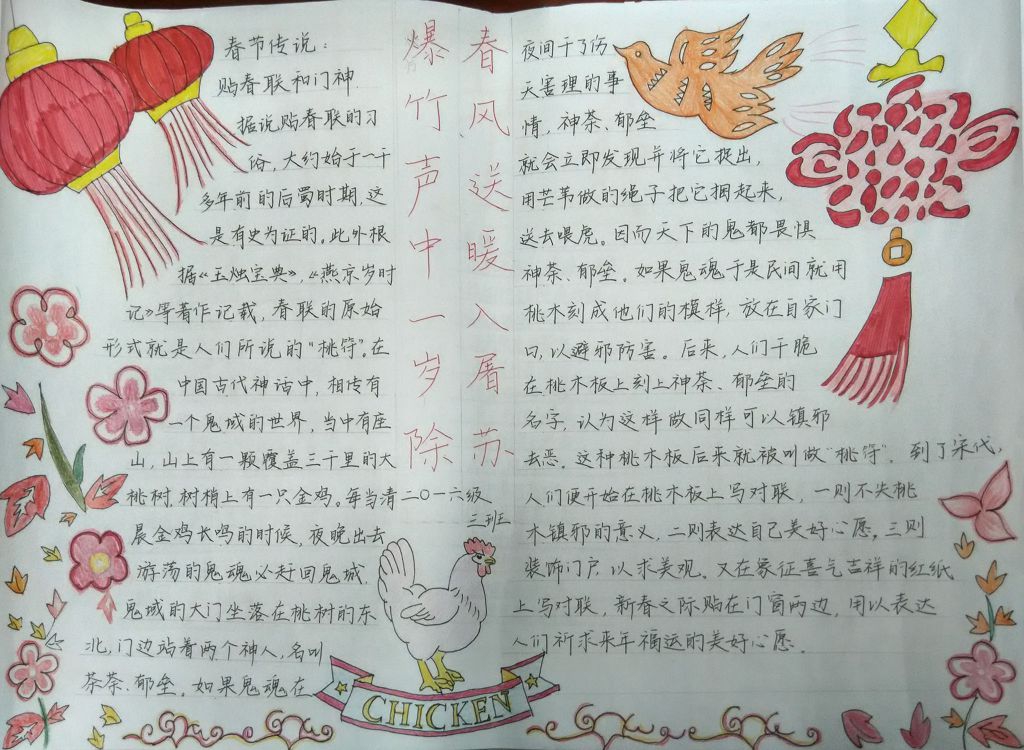 春节传说：
贴春联和门神
据说贴春联的习
俗，大约始于一千
多年前的后蜀时期，这
是有史为证的。此外根
据《玉烛宝典》，《燕京岁时
记》等著作记载，春联的原始
形式就是人们所说的“桃符”。在
中国古代神话中，相传有
一个鬼域的世界，当中有座
山，山上有一颗覆盖三千里的大
桃树，树梢上有一只金鸡。每当清
晨金鸡长鸣的时候，夜晚出去
游荡的鬼魂必赶回鬼域。
鬼域的大门坐落在桃树的东
北，门边站着两个神人，名叫
荼荼、郁垒。如果鬼魂在
爆竹声中一岁除
春风送暖入屠苏
二〇一六级
三班
夜间干了伤
天害理的事
情，神荼、郁垒
就会立即发现并将它捉出，
用芒苇做的绳子把它捆起来，
送去喂虎。因而天下的鬼都畏惧
神荼、郁垒。如果鬼魂于是民间就用
桃木刻成他们的模样，放在自家门
口，以避邪防害。后来，人们干脆
在桃木板上刻上神荼、郁垒的
名字，认为这样做同样可以镇邪
去恶。这种桃木板后来就被叫做“桃符”。到了宋代，
人们便开始在桃木板上写对联，一则不失桃
木镇邪的意义，二则表达自己美好心愿。三则
装饰门户，以求美观。又在象征喜气吉祥的红纸
上写对联，新春之际贴在门窗两边，用以表达
人们祈求来年福运的美好心愿。
CHICKEN